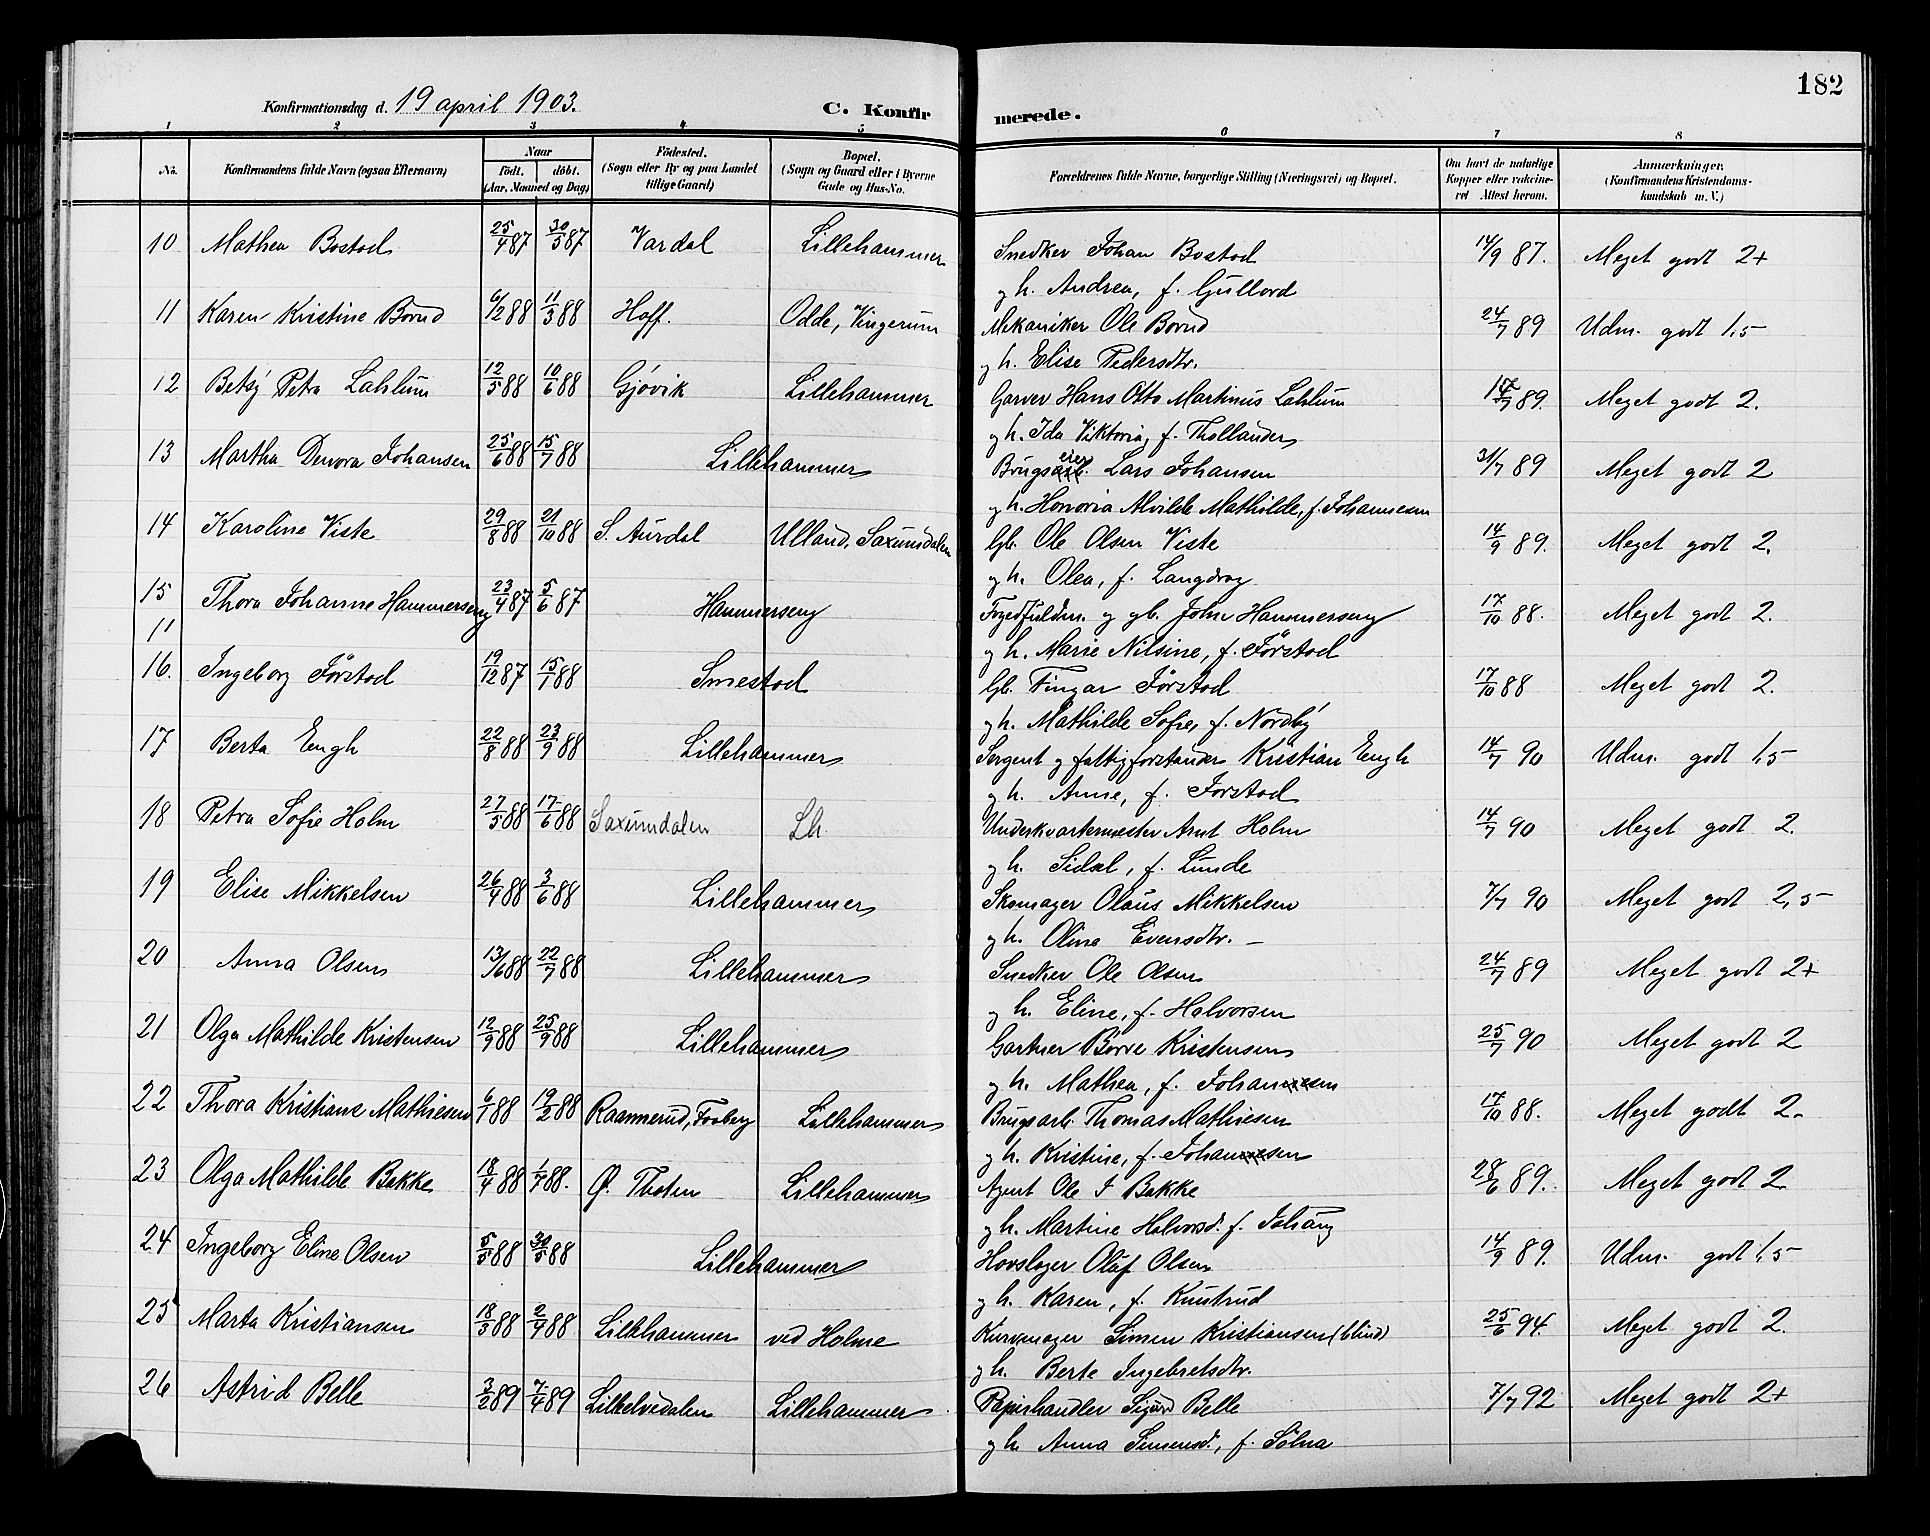 182
Konfirmationsdag d. 19 april 1903. C. Konfirmerede.
1 2 3 4 5 6 7 8
No. Konfirmandens fulde Navn (ogsaa Efternavn) Naar Født. døbt. (Aar, Maaned og Dag) Fødested. (Sogn eller By og paa Landet tillige Gaard) Bopæl. (Sogn og Gaard eller i Byerne Gade og Hus-No. Forældrenes fulde Navne, borgerlige Stilling (Næringsvei) og Bopæl. Om havt de naturlige Kopper eller vaccineret Attest herom. Anmærkninger. (Konfirmandens Kristendomskundskab m. V.)
10 Mathea Bostad 25/4 87 30/5 87 Vardal Lillehammer Snedker Johan Bostad 14/9 87. Meget godt 2+
og h. Andrea, f. Gullord
11 Karen Kristine Borud 6/2 88 11/3 88 Hoff. Odde, Vingerum Mekaniker Ole Borud 24/7 89 Udm. godt 1,5-
og h. Elise Pedersdtr.
12 Betsy Petra Lahlum 12/5 88 10/6 88 Gjøvik Lillehammer Garver Hans Otto Martinus Lahlum 89. Meget godt 2.
og h. Ida Viktoria, f. Thollander
13 Martha Denora Johansen 25/6 88 15/7 88 Lillehammer Brugseier Lars Johansen 31/7 89 Meget godt 2
og h. Honoria Alvilde Mathilde, f. Johannesen
14 Karoline Viste 29/8 88 21/10 88 S. Aurdal Ulland, Saxumdalen Gb. Ole Olsen Viste 14/9 89. Meget godt 2.
og h. Olea, f. Langdrag
15 Thora Johanne Hammerseng 23/4 87 5/6 87 Hammerseng Fogedfuldm. og gb. John Hammerseng 17/10 88. Meget godt 2.
11 og h. Marie Nilsine, f. Förstad
16. Ingeborg Förstad 19/12 87 15/1 88 Smestad Gb. Fingar Förstad 17/10 88 Meget godt 2.
og h. Mathilde Sofie, f. Nordby
17 Berta Engh 22/8 88 23/9 88 Lillehammer Sergent og fattigforstander Kristian Engh 14/7 90 Udm. godt 1,5-
og h. Anne, f. Forstad
18 Petra Sofie Holm 27/5 88 17/6 88 Saxumdalen Lh. Underkvartermester Arnt Holm 14/7 90 Meget godt 2.
og h. Sidsel, f. Lunde
19 Elise Mikkelsen 26/4 88 3/6 88 Lillehammer Skomager Olaus Mikkelsen 7/7 90 Meget godt 2,5-
og h. Oline Evensdtr. -
20 Anna Olsen 13/6 88 22/7 88 Lillehammer Snedker Ole Olsen 24/7 89 Meget godt 2+
og h. Eline, f. Halvorsen
21 Olga Mathilde Kristensen 12/9 88 25/9 88 Lillehammer Gartner Börre Kristensen 25/7 90 Meget godt 2
og h. Mathea, f. Johannesen
22 Thora Kristiane Mathiesen 6/1 88 19/2 88 Raamnerud, Faaberg Lillehammer Brugsarb. Thomas Mathiesen 17/10 88. Meget godt 2.
og h. Kristine, f. Johannessen
23 Olga Mathilde Bakke 18/4 88 88. Ø. Thoten Lillehammer Agent Ole J Bakke 28/6 89. Meget godt 2.
og h. Martine Halvorsd. f.
24 Ingeborg Eline Olsen 5/5 88 30/5 88 Lillehammer Hovslager Oluf Olsen 14/9 89. Udm. godt 1,5-
og h. Karen, f. Knutrud
25 Marta Kristiansen 18/3 88 2/4 88 Lillehammer ved Holme Kurvmager Simen Kristiansen (blind) 25/6 94. Meget godt 2.
og h. Berte Ingebretsdtr.
26 Astrid Belle 3/2 89 7/4 89 Lillelvedalen Lillehammer Papirhandler Sigurd Belle 7/7 92 Meget godt 2+
og h. Anna Simensd., f. Sölna